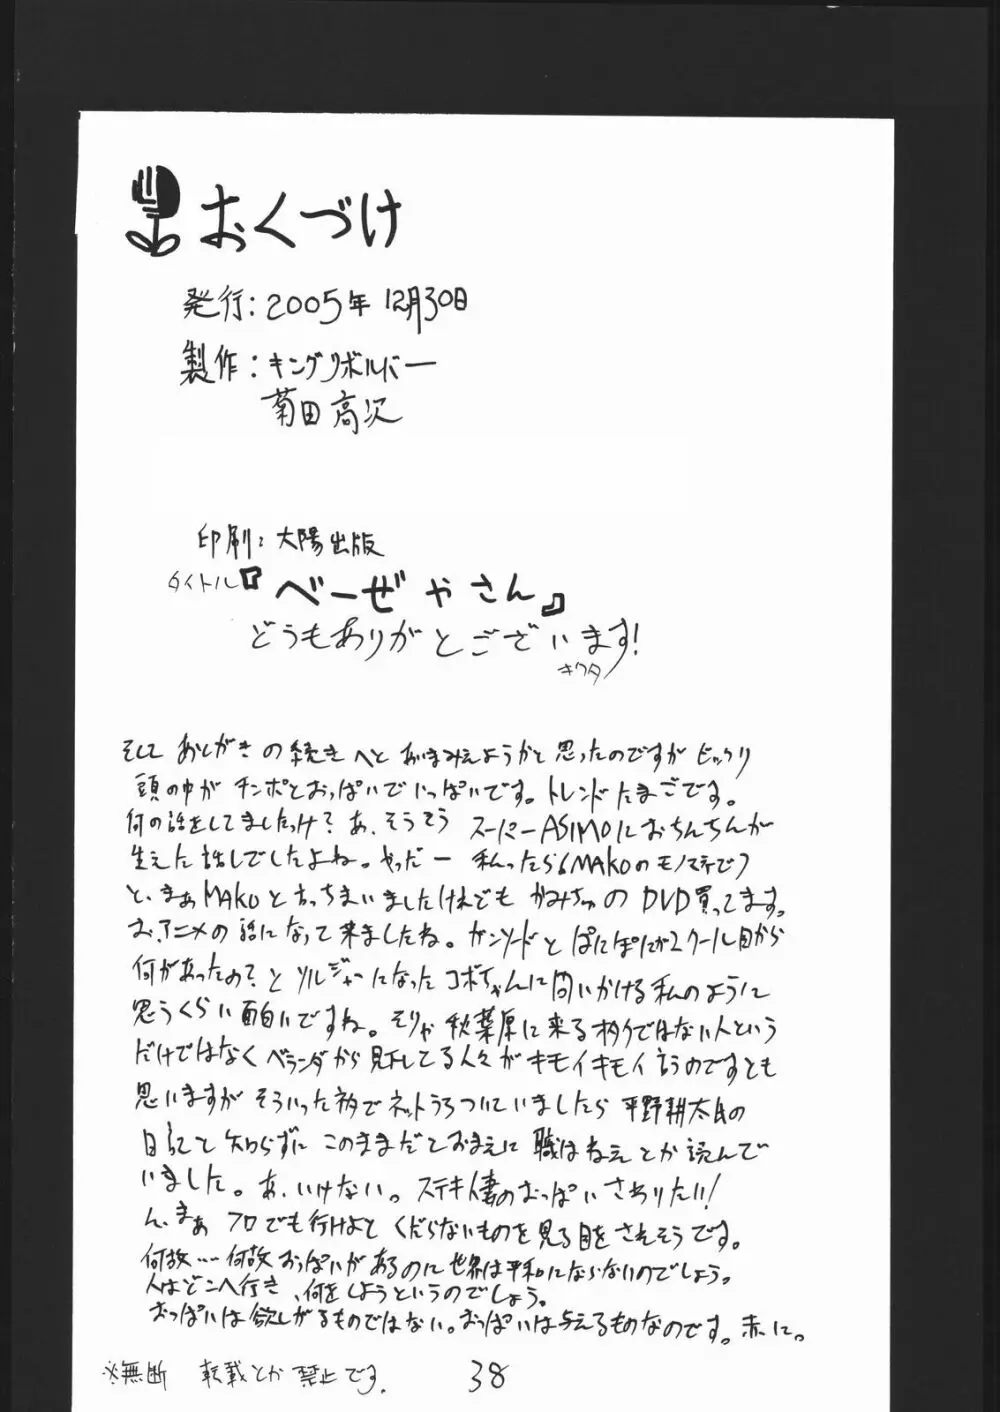 おくづけ
発行:2005年12月30日
製作:キングリボルバー
菊田高次
印刷:大陽出版
タイトル『べーぜやさん』
どうもありがとございます!
キクタ
そして あとがきの続きへと あいまみえようかと思ったのですが ビックリ
頭の中がチンポとおっぱいでいっぱいです。トレンドたまごです。
何の話をしてましたっけ?あ、そうそう スーパーASIMOにおちんちんが
生えた話しでしたよね。やっだー 私ったら(MAKOのモノマネで)
と、まぁMAKOと言っちまいましたけれども かみちゅのDVD買ってます。
お、アニメの話になって来ましたね。ガンソードとぱにぽにが2クール目から
何があったの?とソルジャーになったコボちゃんに問いかける私のように
思うくらい面白いですね。そりゃ秋葉原に来るオタクではない人という
だけではなくベランダから見下してる人々がキモイキモイ言うのですとも
思いますが そういった訳でネットうろついていましたら 平野耕太氏の
日記と知らずに このままだとおまえに職はねぇとか読んで
いました。あ、いけない。ステキ人妻のおっぱいさわりたい!
ん、まぁ フロでも行けよと くだらないものを見る目をされそうです。
何故……何故おっぱいがあるのに世界は平和にならないのでしょう。
人はどこへ行き、何をしようというのでしょう。
おっぱいは欲しがるものではない。おっぱいは与えるものなのです。赤に。
※無断 転載とか禁止です。
38